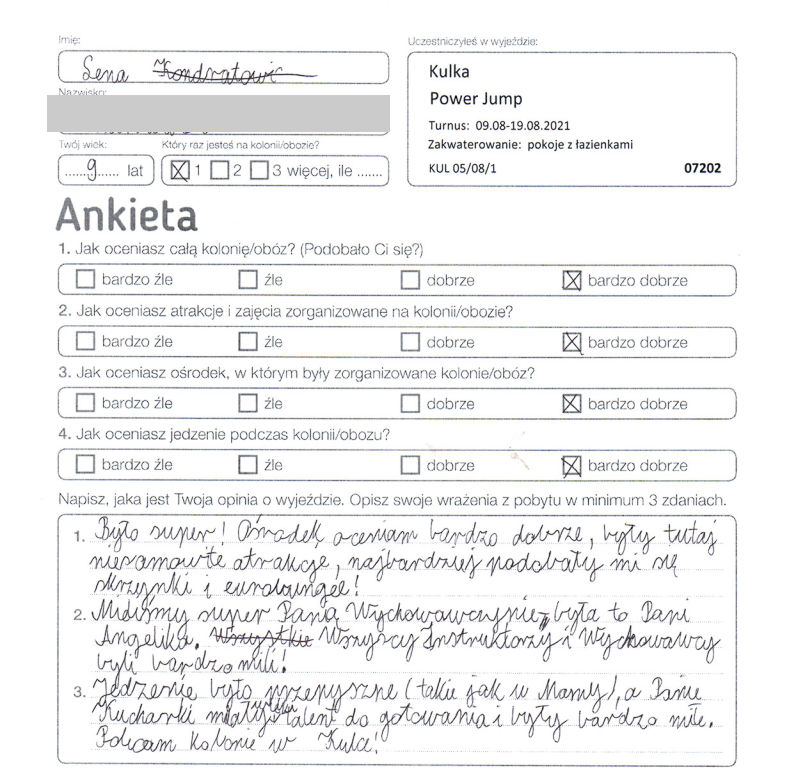 Imię:
Lena Kondratowi
Nazwisko:
Twój wiek:
9 lat
Który raz jesteś na kolonii/obozie?
☒ 1 ☐ 2 ☐ 3 więcej, ile .......
Uczestniczyłeś w wyjeździe:
Kulka
Power Jump
Turnus: 09.08-19.08.2021
Zakwaterowanie: pokoje z łazienkami
KUL 05/08/1 07202
Ankieta
1. Jak oceniasz całą kolonię/obóz? (Podobało Ci się?)
☐ bardzo źle ☐ źle ☐ dobrze ☒ bardzo dobrze
2. Jak oceniasz atrakcje i zajęcia zorganizowane na kolonii/obozie?
☐ bardzo źle ☐ źle ☐ dobrze ☒ bardzo dobrze
3. Jak oceniasz ośrodek, w którym były zorganizowane kolonie/obóz?
☐ bardzo źle ☐ źle ☐ dobrze ☒ bardzo dobrze
4. Jak oceniasz jedzenie podczas kolonii/obozu?
☐ bardzo źle ☐ źle ☐ dobrze ☒ bardzo dobrze
Napisz, jaka jest Twoja opinia o wyjeździe. Opisz swoje wrażenia z pobytu w minimum 3 zdaniach.
1. Było super! Ośrodek oceniam bardzo dobrze, były tutaj
niesamowite atrakcje, najbardziej podobały mi się
skrzynki i eurobungee!
2. Mieliśmy super Panią Wychowawczynię, była to Pani
Angelika. Wszystkie Wszyscy Instruktorzy i Wychowawcy
byli bardzo mili!
3. Jedzenie było przepyszne (takie jak u Mamy), a Panie
Kucharki miały talent do gotowania i były bardzo miłe.
Polecam kolonie w Kulce!